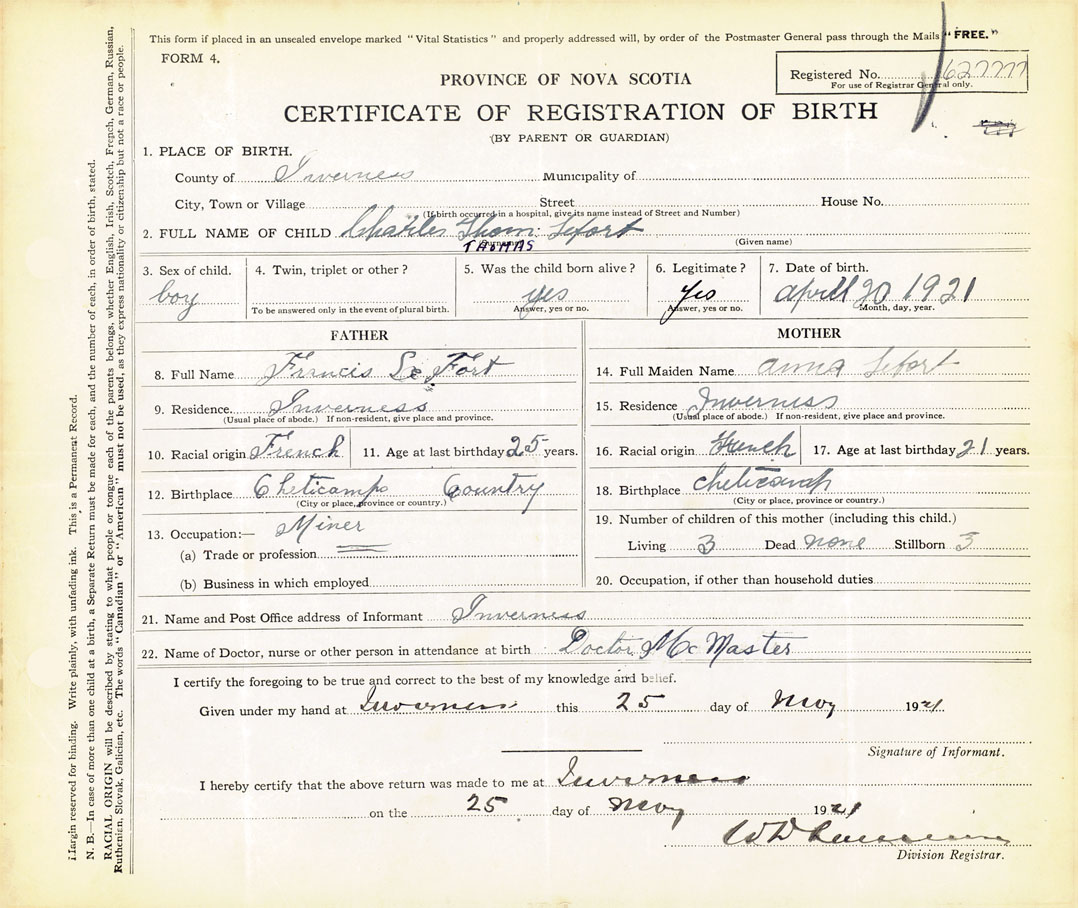 This form if placed in an unsealed envelope marked "Vital Statistics" and properly addressed will, by order of the Postmaster General pass through the Mails "FREE."
FORM 4.
Registered No.
For use of Registrar General only.
PROVINCE OF NOVA SCOTIA
CERTIFICATE OF REGISTRATION OF BIRTH
(BY PARENT OR GUARDIAN)
1. PLACE OF BIRTH.
County of Inverness Municipality of
City, Town or Village Street House No.
(If birth occurred in a hospital, give its name instead of Street and Number)
2. FULL NAME OF CHILD Charles Thom: Lefort
(Surname) THOMAS (Given name)
3. Sex of child. 4. Twin, triplet or other? 5. Was the child born alive? 6. Legitimate? 7. Date of birth.
boy yes yes april 20 1921
To be answered only in the event of plural birth. Answer, yes or no. Answer, yes or no. Month, day, year.
FATHER MOTHER
8. Full Name Francis Le Fort 14. Full Maiden Name anna Lefort
9. Residence Inverness 15. Residence Inverness
(Usual place of abode.) If non-resident, give place and province. (Usual place of abode.) If non-resident, give place and province.
10. Racial origin French 11. Age at last birthday 25 years. 16. Racial origin French 17. Age at last birthday 21 years.
12. Birthplace Cheticamp Country 18. Birthplace
(City or place, province or country.) (City or place, province or country.)
13. Occupation:— Miner 19. Number of children of this mother (including this child.)
(a) Trade or profession Living 3 Dead none Stillborn 3
(b) Business in which employed 20. Occupation, if other than household duties
21. Name and Post Office address of Informant Inverness
22. Name of Doctor, nurse or other person in attendance at birth Doctor McMaster
I certify the foregoing to be true and correct to the best of my knowledge and belief.
Given under my hand at Inverness this 25 day of May 1921
Signature of Informant.
I hereby certify that the above return was made to me at Inverness
on the 25 day of May 1921
Division Registrar.
Margin reserved for binding. Write plainly, with unfading ink. This is a Permanent Record.
N. B.—In case of more than one child at a birth, a Separate Return must be made for each, and the number of each, in order of birth, stated.
RACIAL ORIGIN will be described by stating to what people or tongue each of the parents belongs, whether English, Irish, Scotch, French, German, Russian,
Ruthenian, Slovak, Galician, etc. The words "Canadian" or "American" must not be used, as they express nationality or citizenship but not a race or people.